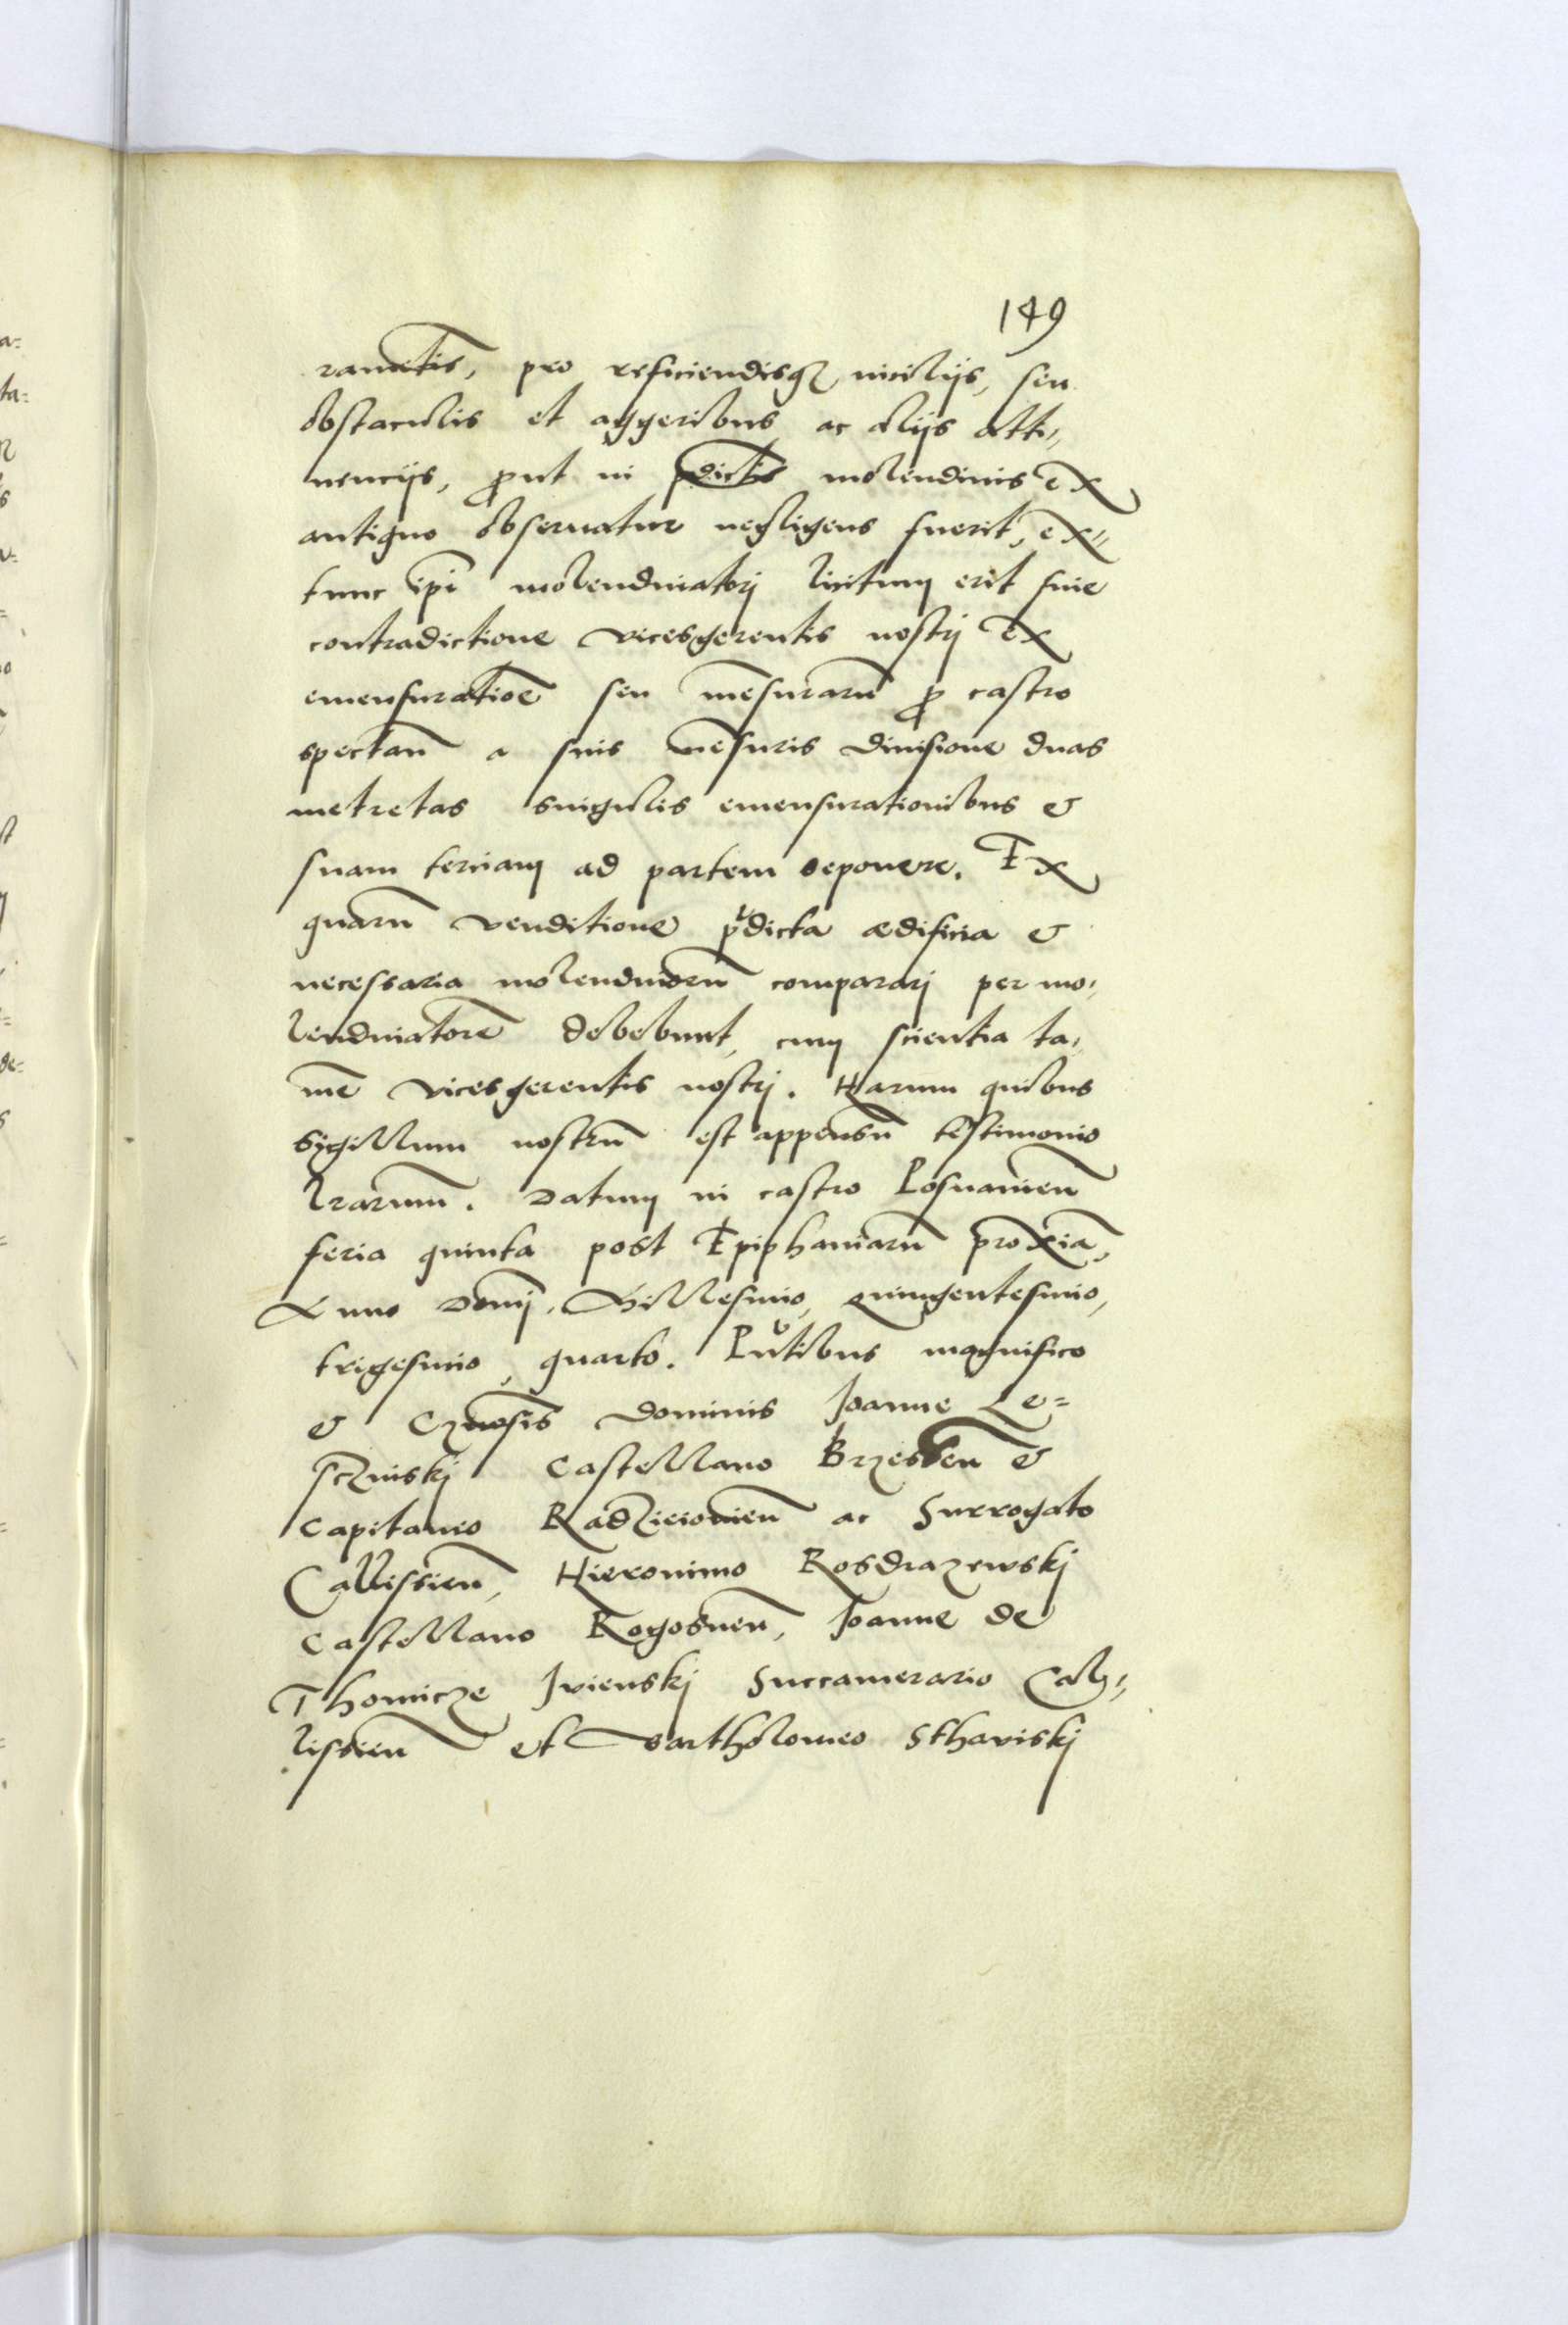 149
ramētis, pro reficiendisqȝ micilijs, seu
obstaculis et aggeribus ac alijs atti„
nencijs, ꝓut in p̄dictis molendinis ex
antiquo obseruatur negligens fuerit, ex„
tunc ip̄i molendinatorj licitum erit sine
contradictione vicesgerentis nostrj Ex
emensuratiōe seu mēsurarū ꝓ castro
spectan̄ a suis mēsuris diuisione duas
metretas singulis emensurationibus &
suam terciam ad partem deponere. Ex
quarū venditione p̄dicta ædificia &
necessaria molendinorū compararj per mo„
lendinatorē debebunt, cum scientia ta„
mē vicesgerentis nostrj. Harum quibus
sigillum nostrū est appensū testimonio
l̄rarum. Datum in castro Posnanien̄
feria quinta post Epiphaniarū proxiā,
Anno Domj. Millesimo, quingentesimo,
trigesimo, quarto. Pn̄tibus magnifico
& Gn̄osis Dominis Joanne Le=
sczinskj Castellano Brzesten̄ &
Capitaneo Radzieiouien̄ ac Surrogato
Callissien̄, Hieronimo Rosdrazewskj
Castellano Rogosnen̄, Joanne de
Thomicze Ivienskj Succamerario Cal„
lissien̄ et Bartholomeo Sthaviskj